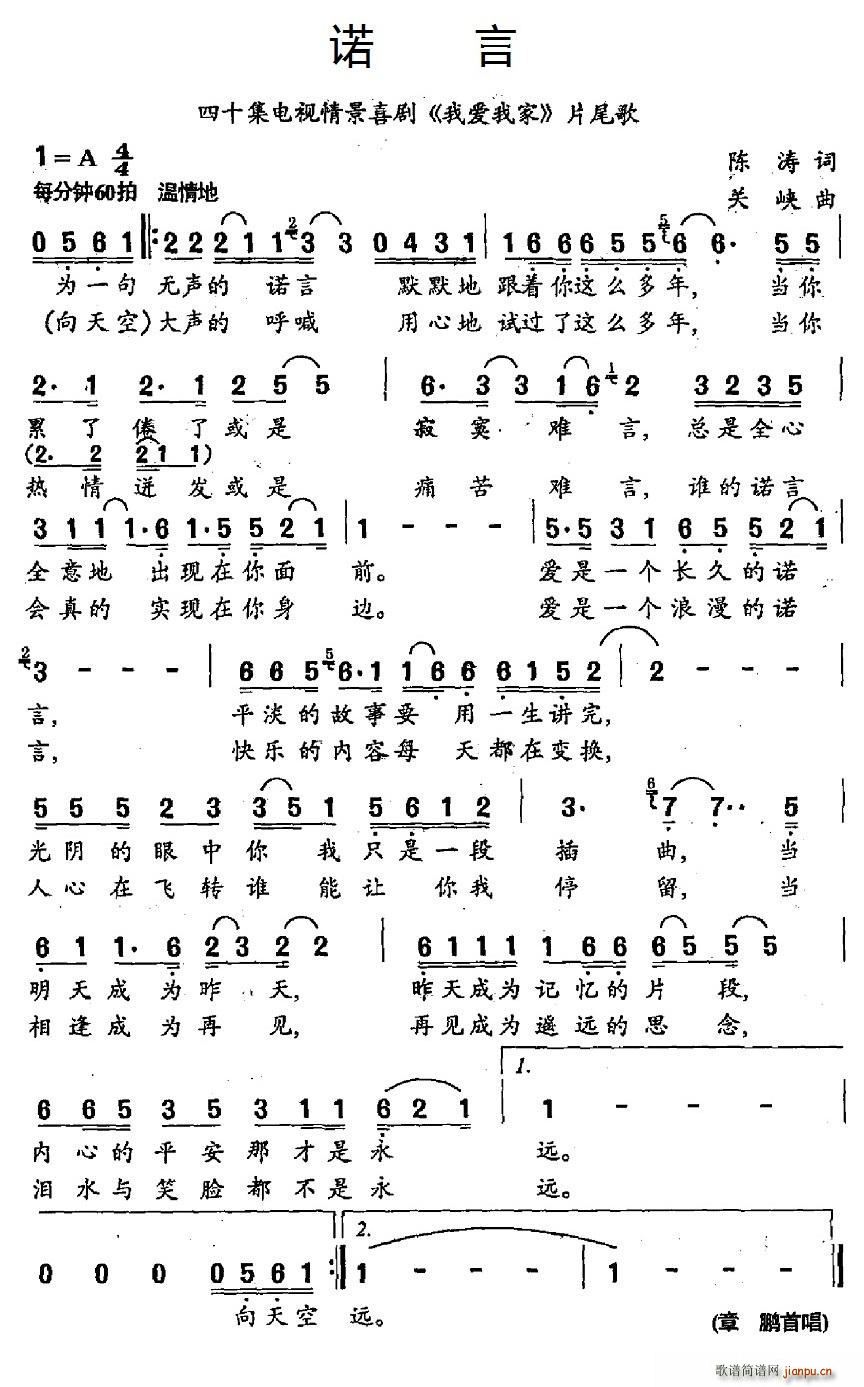 诺 言
四十集电视情景喜剧《我爱我家》片尾歌
1=A 4/4 陈 涛 词
每分钟60拍 温情地 关 峡 曲
0 5 6 1 2 2 2 1 1 2 3 3 0 4 3 1 1 6 6 6 5 5 5 6 6· 5 5
为一句 无声的 诺言 默默地 跟着你这么多年, 当你
(向天空)大声的 呼喊 用心地 试过了这么多年, 当你
2· 1 2· 1 2 5 5 6· 3 3 1 6 1 2 3 2 3 5
累了倦了或是 寂寞 难言, 总是全心
(2· 2 2 1 1)
热情迸发或是 痛苦 难言, 谁的诺言
3 1 1 1· 6 1· 5 5 2 1 1 - - - 5· 5 3 1 6 5 5 2 1
全意地 出现在你面 前。 爱是一个长久的诺
会真的 实现在你身 边。 爱是一个浪漫的诺
2 3 - - - 6 6 5 5 6· 1 1 6 6 6 1 5 2 2 - -
言, 平淡的故事要 用一生讲完,
言, 快乐的内容每 天都在变换,
5 5 5 2 3 3 5 1 5 6 1 2 3· 6 7 7·· 5
光阴的眼中你 我只是一段 插 曲, 当
人心在飞转谁 能让 你我 停 留, 当
6 1 1· 6 2 3 2 2 6 1 1 1 1 6 6 6 5 5 5
明天成为昨 天, 昨天成为记忆的片段,
相逢成为再 见, 再见成为遥远的思念,
1.
6 6 5 3 5 3 1 1 6 2 1 1 - - -
内心的平安那才是永 远。
泪水与笑脸都不是永 远。
2.
0 0 0 0 5 6 1 1 - - - 1 - - -
向天空 远。
(章 鹏首唱)
歌谱简谱网
jianpu.cn